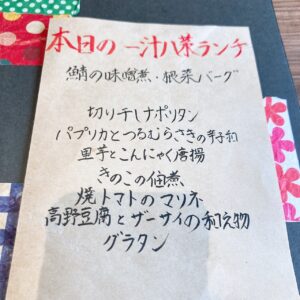 本日の一汁八菜ランチ
鯖の味噌煮・根菜バーグ
切り干しナポリタン
パプリカとつるむらさきの辛子和
里芋とこんにゃく唐揚
きのこの佃煮
焼トマトのマリネ
高野豆腐とザーサイの和え物
グラタン